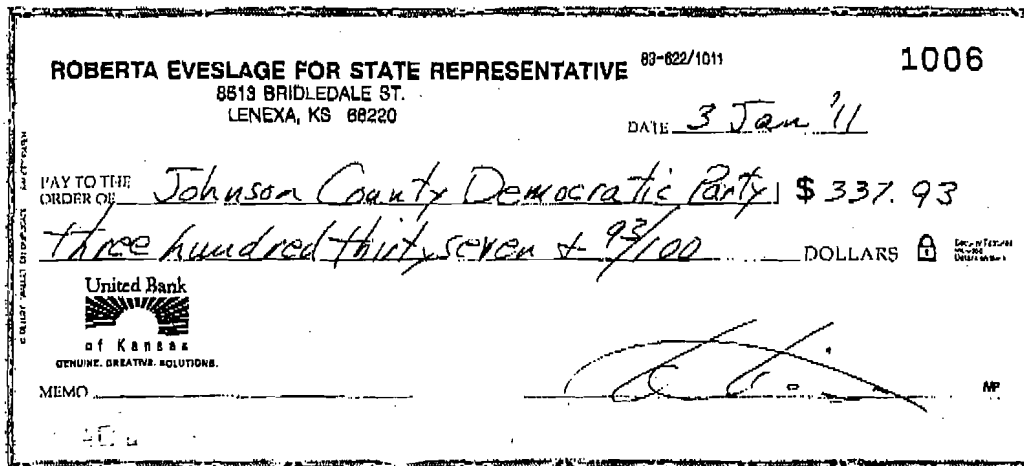 ROBERTA EVESLAGE FOR STATE REPRESENTATIVE 83-622/1011 1006
8613 BRIDLEDALE ST.
LENEXA, KS 66220
DATE 3 Jan '11
PAY TO THE
ORDER OF Johnson County Democratic Party $ 337.93
three hundred thirty seven & 93/100 DOLLARS
United Bank
of Kansas
GENUINE. CREATIVE. SOLUTIONS.
MEMO MP